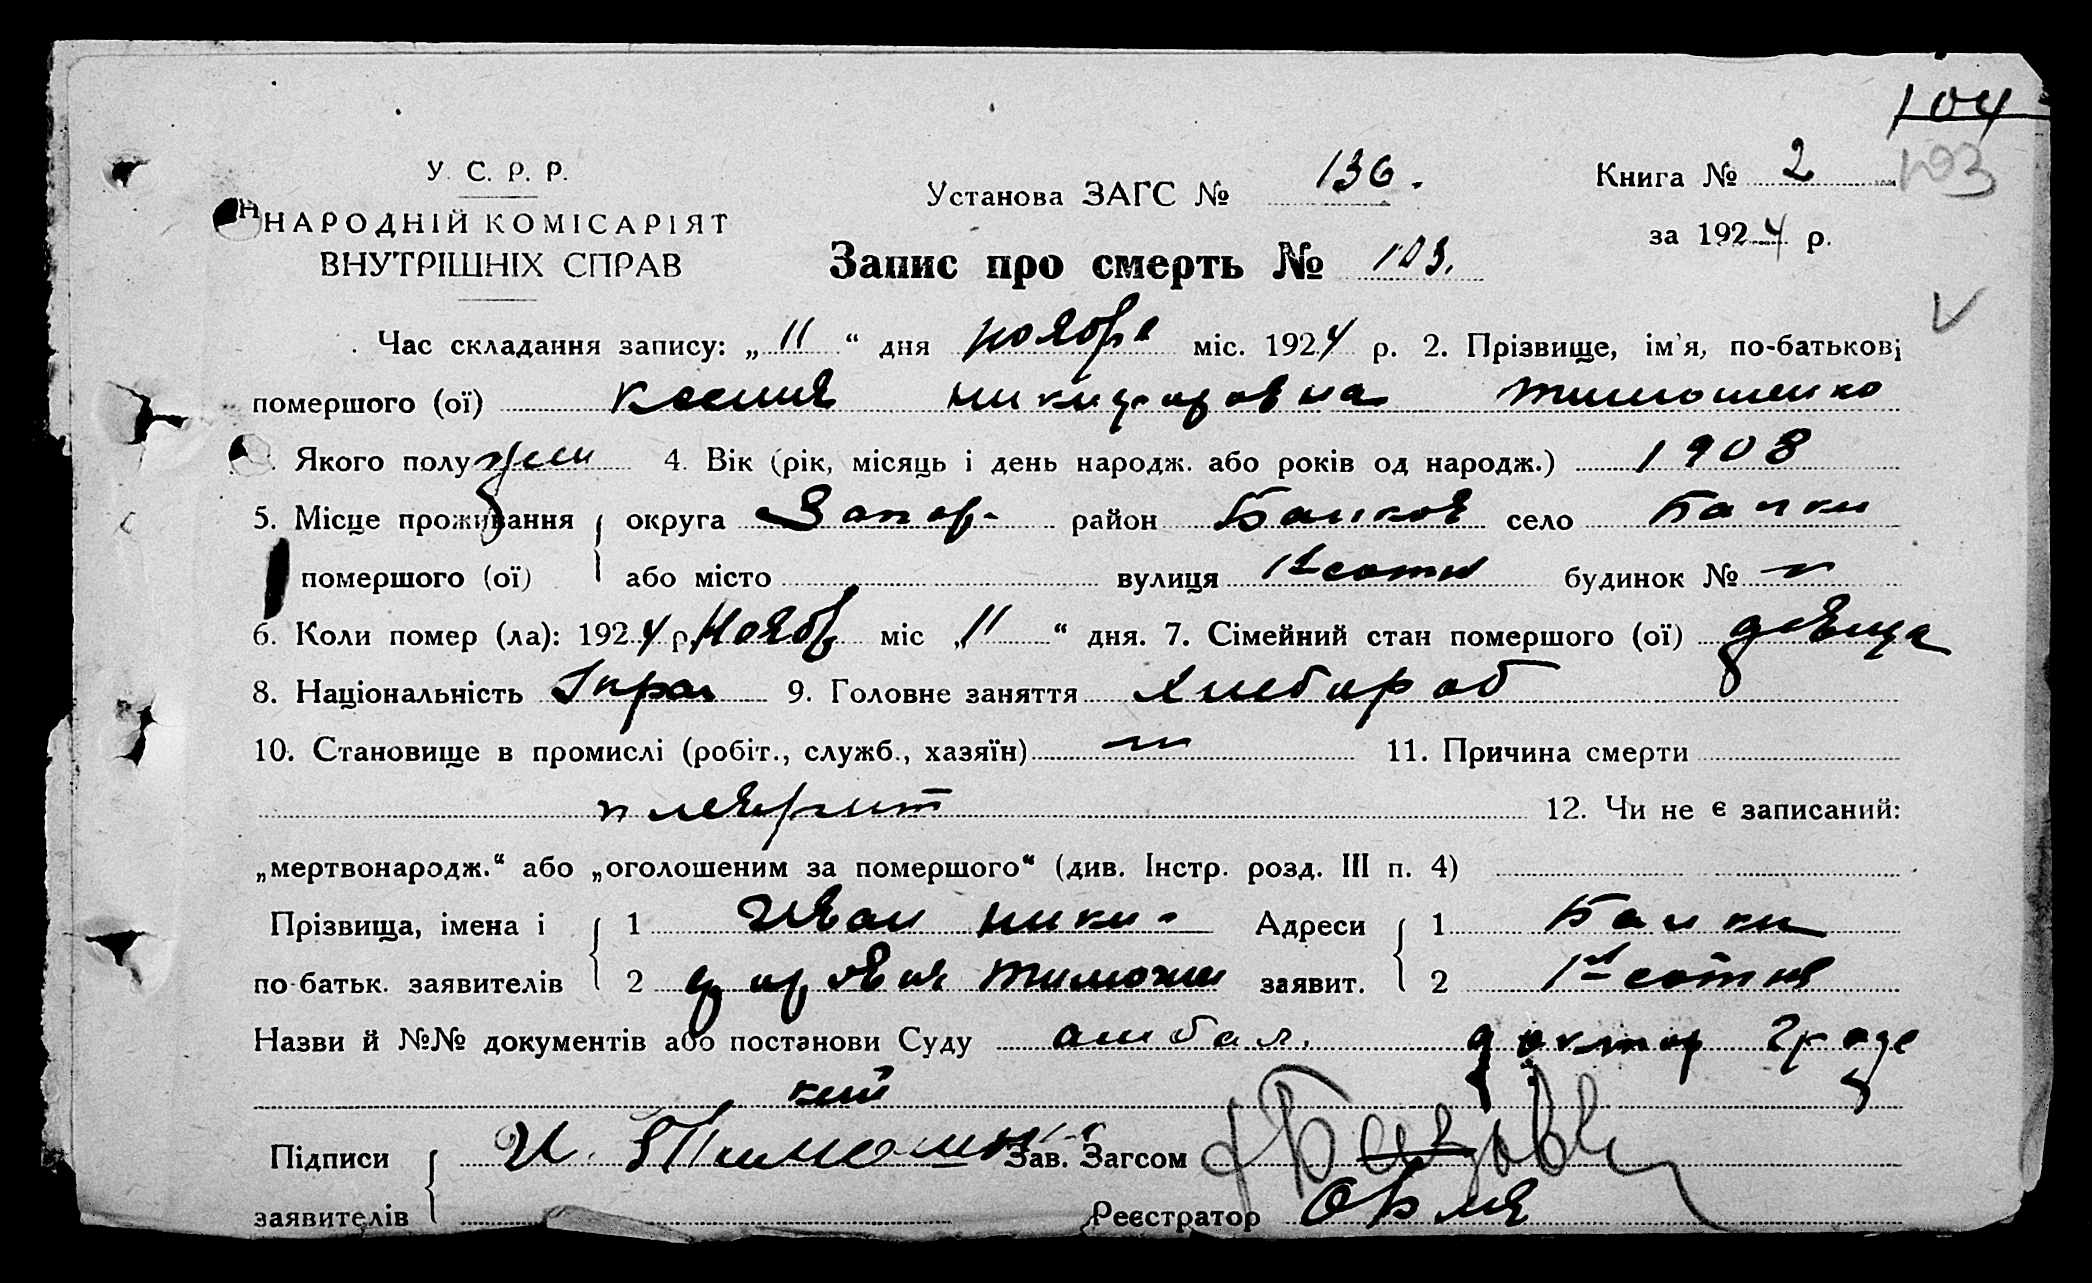 104
У. С. Р. Р.
Установа ЗАГС № 136.
Книга № 2
103
НАРОДНІЙ КОМІСАРІЯТ
ВНУТРІШНІХ СПРАВ
за 1924 р.
Запис про смерть № 103.
Час складання запису: „11“ дня ноября міс. 1924 р. 2. Прізвище, ім'я, по-батькові
помершого (ої) Ксения никифоровна тимошенко
Якого полу жен 4. Вік (рік, місяць і день народж. або років од народж.) 1908
5. Місце проживання округа Запор- район Балков село Балки
помершого (ої) або місто вулиця 1я сотня будинок №
6. Коли помер (ла): 1924 р. Нояб міс „11“ дня. 7. Сімейний стан помершого (ої) девица
8. Національність Украи 9. Головне заняття хлебороб
10. Становище в промислі (робіт., служб., хазяїн) 11. Причина смерти
плеврит 12. Чи не є записаний:
„мертвонародж.“ або „оголошеним за помершого“ (див. Інстр. розд. III п. 4)
Прізвища, імена і 1 Иван ники- Адреси 1 Балки
по-батьк. заявителів 2 форович тимоше заявит. 2 1я сотня
Назви й №№ документів або постанови Суду амбал. доктор
кий
Підписи И. Тимошен Зав. Загсом
заявителів Реєстратор